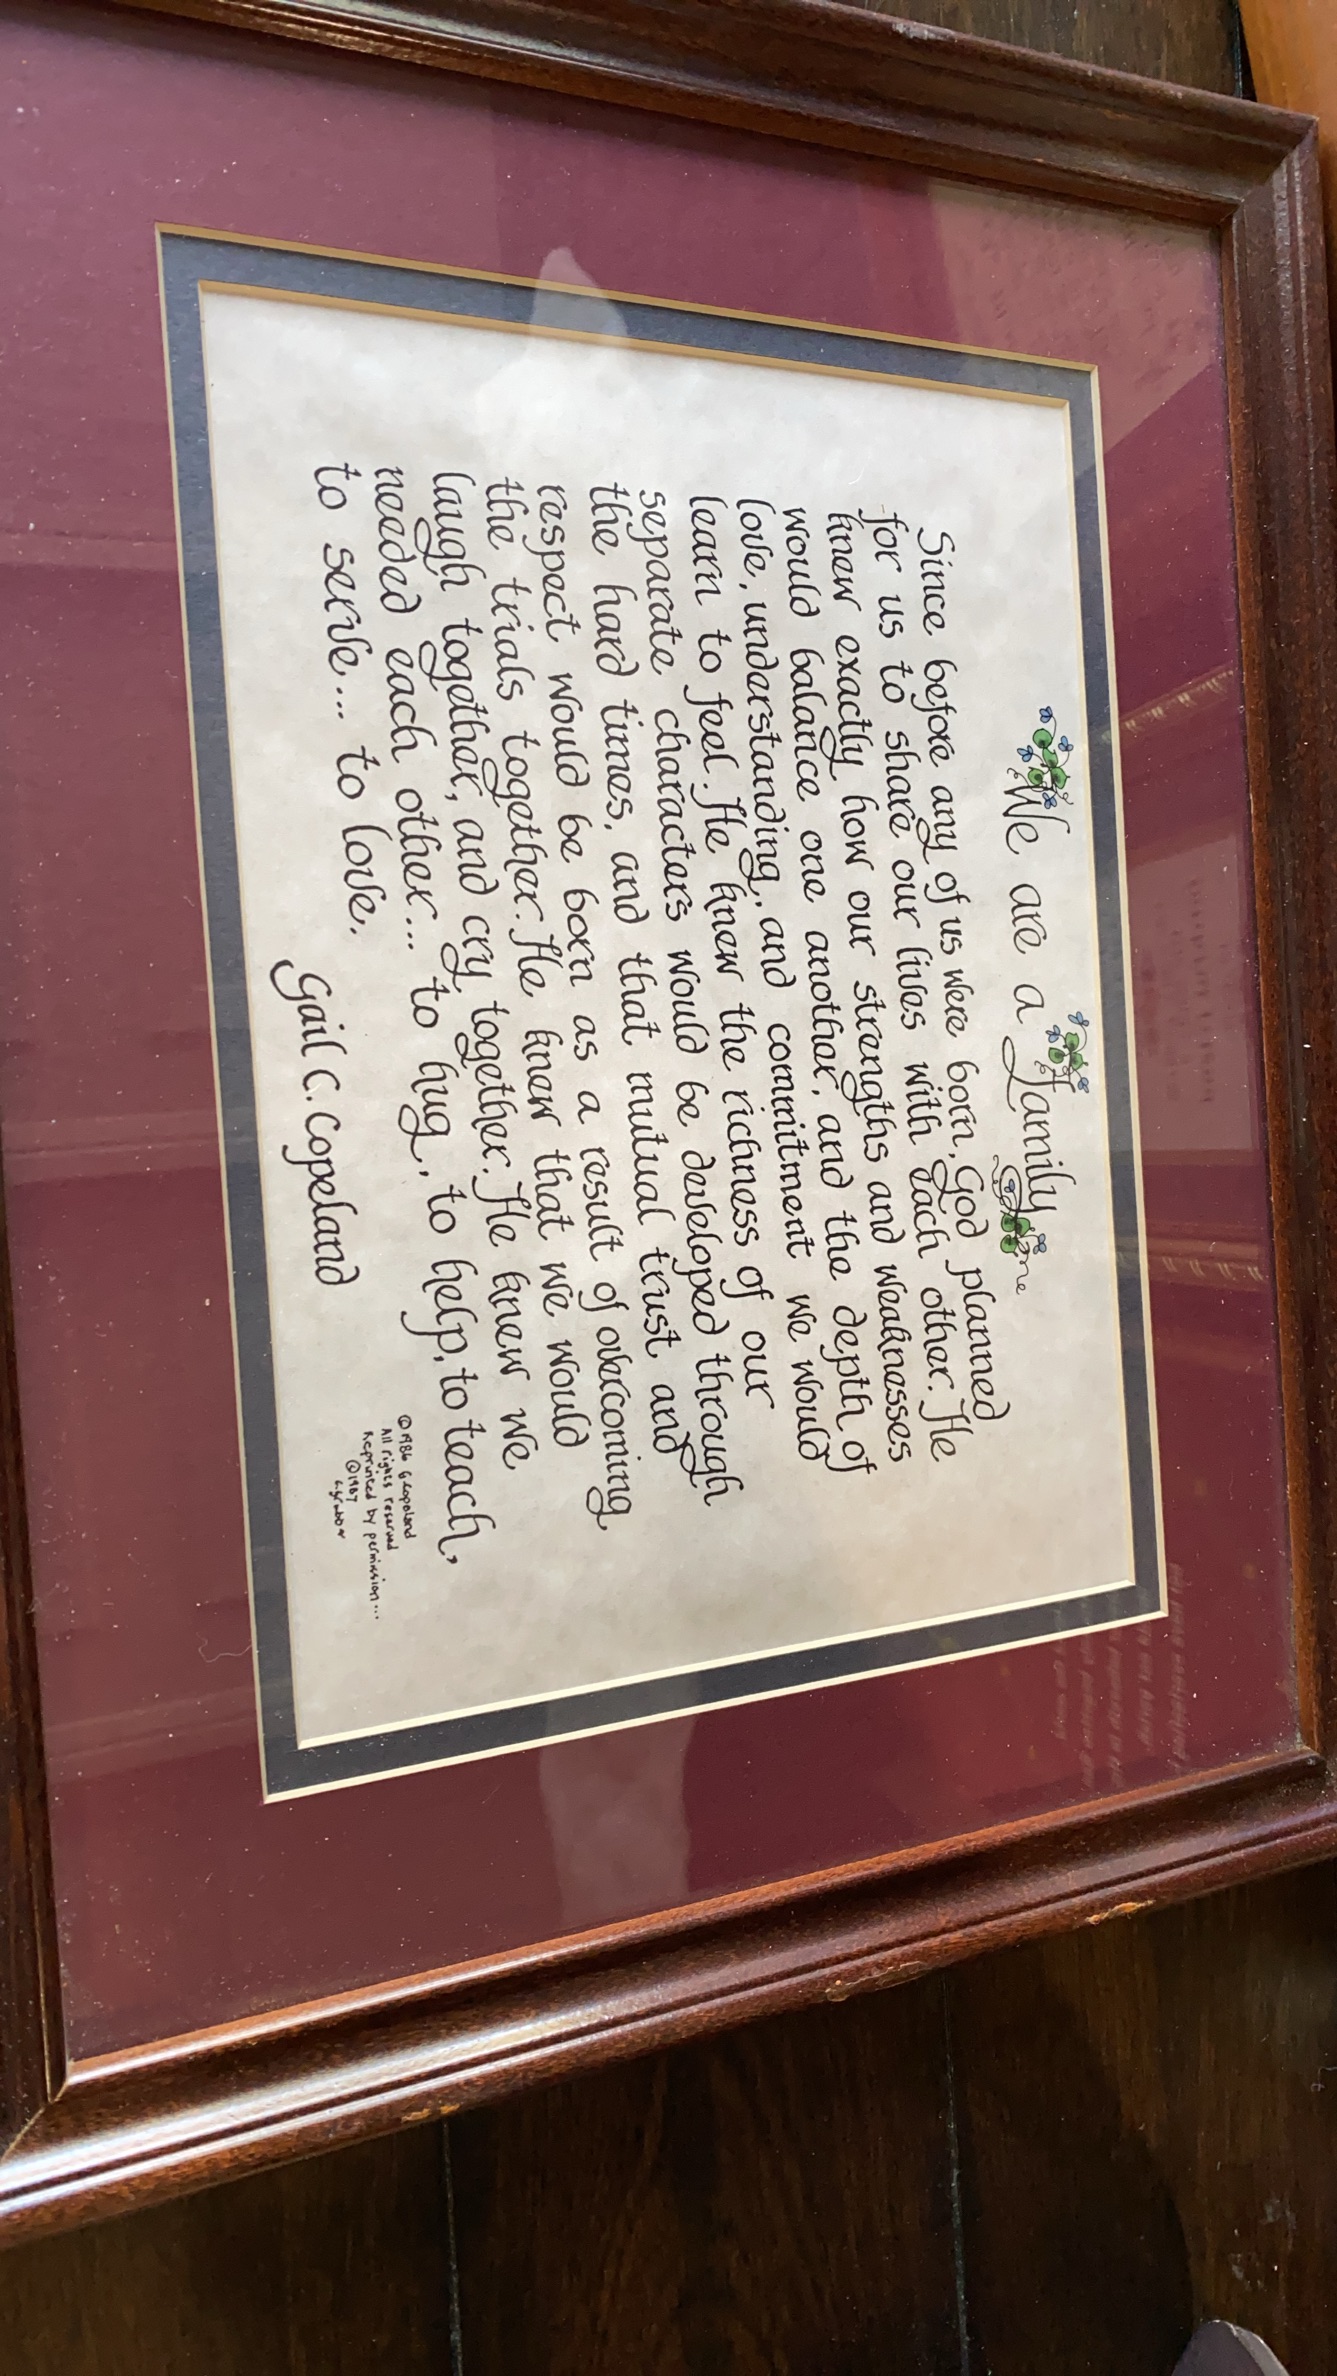 We are a Family
Since before any of us were born, God planned
for us to share our lives with each other. He
knew exactly how our strengths and weaknesses
would balance one another, and the depth of
love, understanding, and commitment we would
learn to feel. He knew the richness of our
separate characters would be developed through
the hard times, and that mutual trust and
respect would be born as a result of overcoming
the trials together. He knew that we would
laugh together, and cry together. He knew we
needed each other... to hug, to help, to teach,
to serve... to love.
Gail C. Copeland
©1986 G Copeland
All rights reserved
Reprinted by permission...
©1987